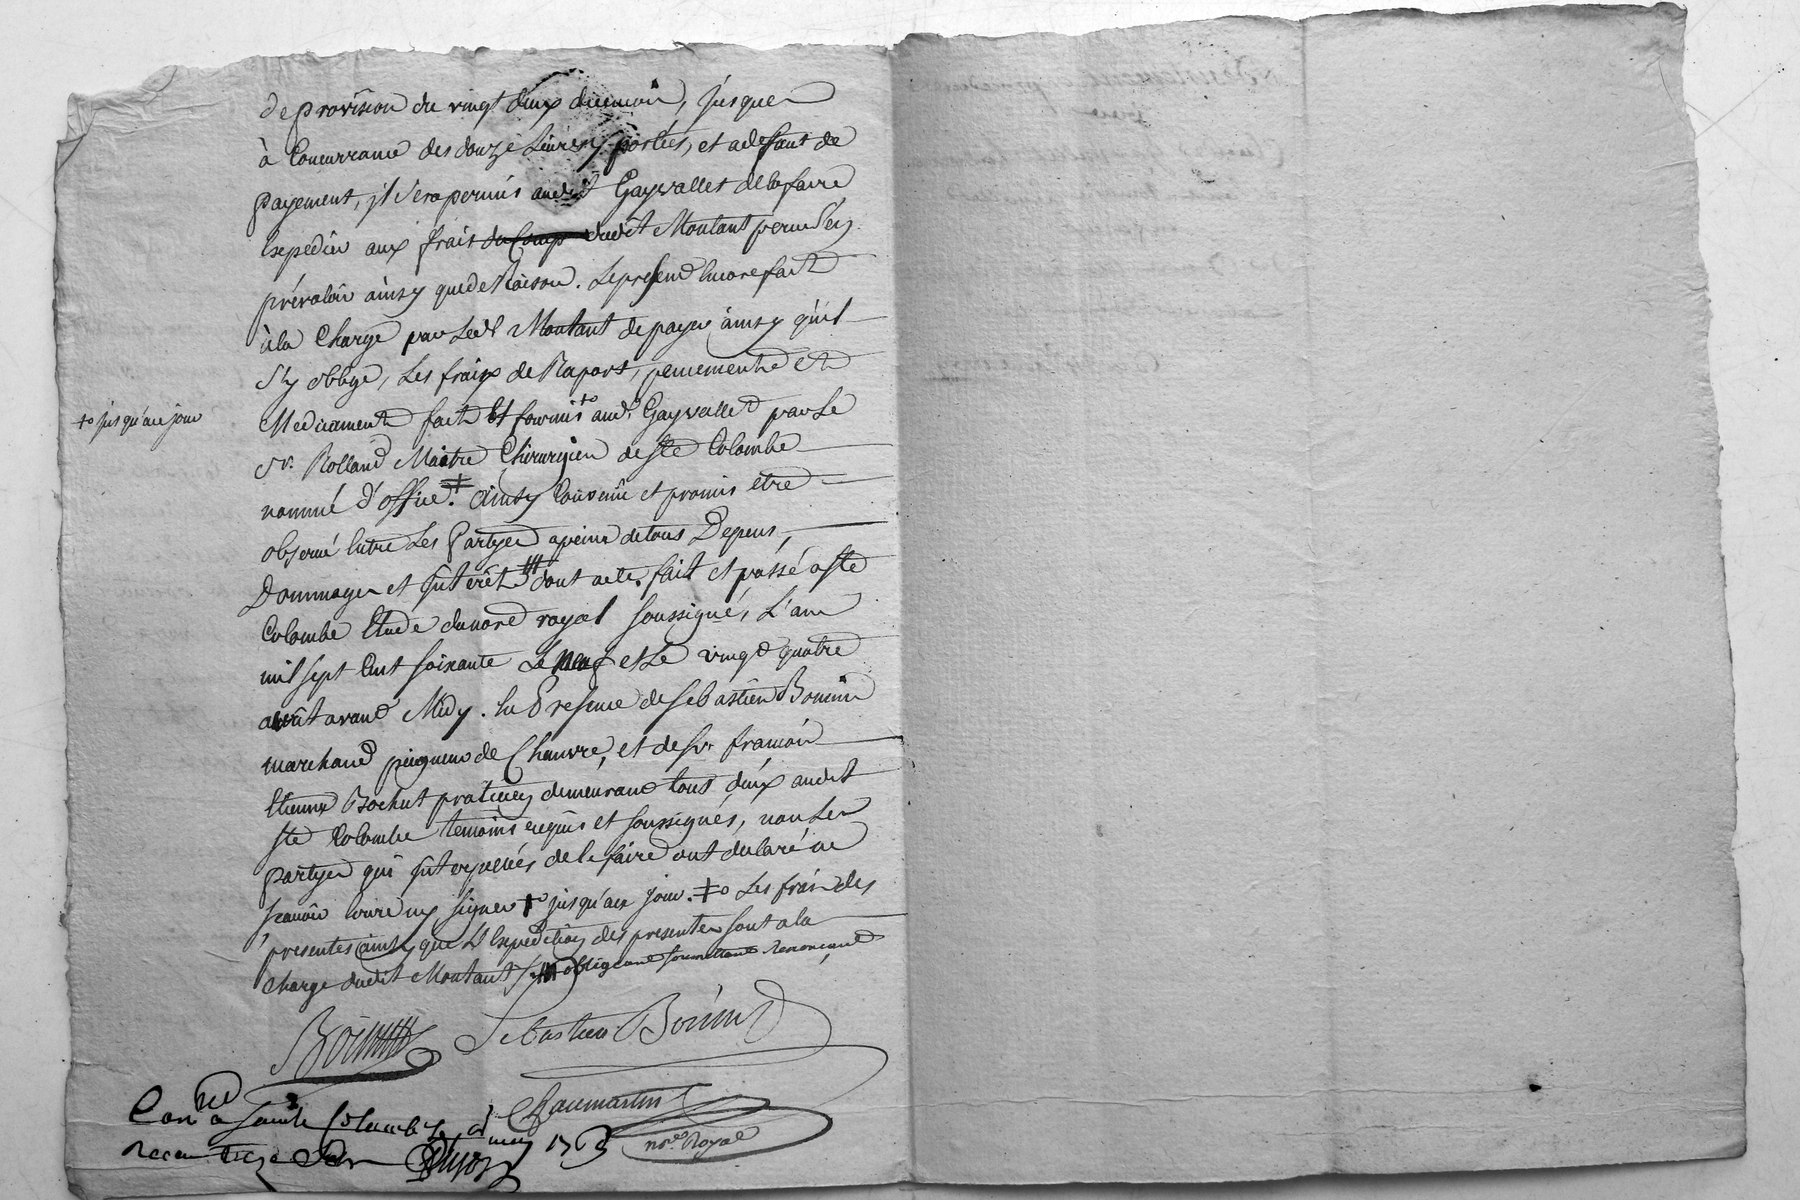 de provision du vingt deux du mois, jusques
à Concurrance des douze Livres y portées, et a defaut de
payement, jl sera permis audit Gayvallet de la faire
Expedier aux frais dudit Moutant pour s'en
prévaloir ainsy que de Raison. Le present Encore fait
à la Charge par Ledt Moutant de payer ainsy qu'il
s'y oblige, Les fraix de Raport, pencements Et
+o jusqu'au jour
Medicaments faits Et fournis +o aud. Gayvallet par Le
Sr. Rolland Maitre Chirurgien de Ste Colombe
nommé d'office. ‡ Ainsy Convenû et promis etre
observé Entre Les Partyes a peine de tous Depens,
Dommages et Jnterêts dont acte. fait et passé a Ste
Colombe Etude du nore royal soussigné, L'an
mil sept Cent soixante et Le vingt quatre
avant Midy. En Presence de Sebastien Bonnin
marchand peigneur de Chanvre, et de Sr. françois
Etienne Bochut praticien demeurant tous deux audit
Ste Colombe temoins requis et soussignés, non Les
partyes qui Jnterpellées de le faire ont declaré ne
scavoir ecrire ny signer +o jusqu'au jour. ‡o Les frais des
presentes ainsy que L'Expedition des presentes sont a la
Charge dudit Moutant obligeant soumettant renonçant
Sebastien Bonin
Chaumartin
nore Royal
Con. a Sainte Colombe le
mai 176
recu treize sols